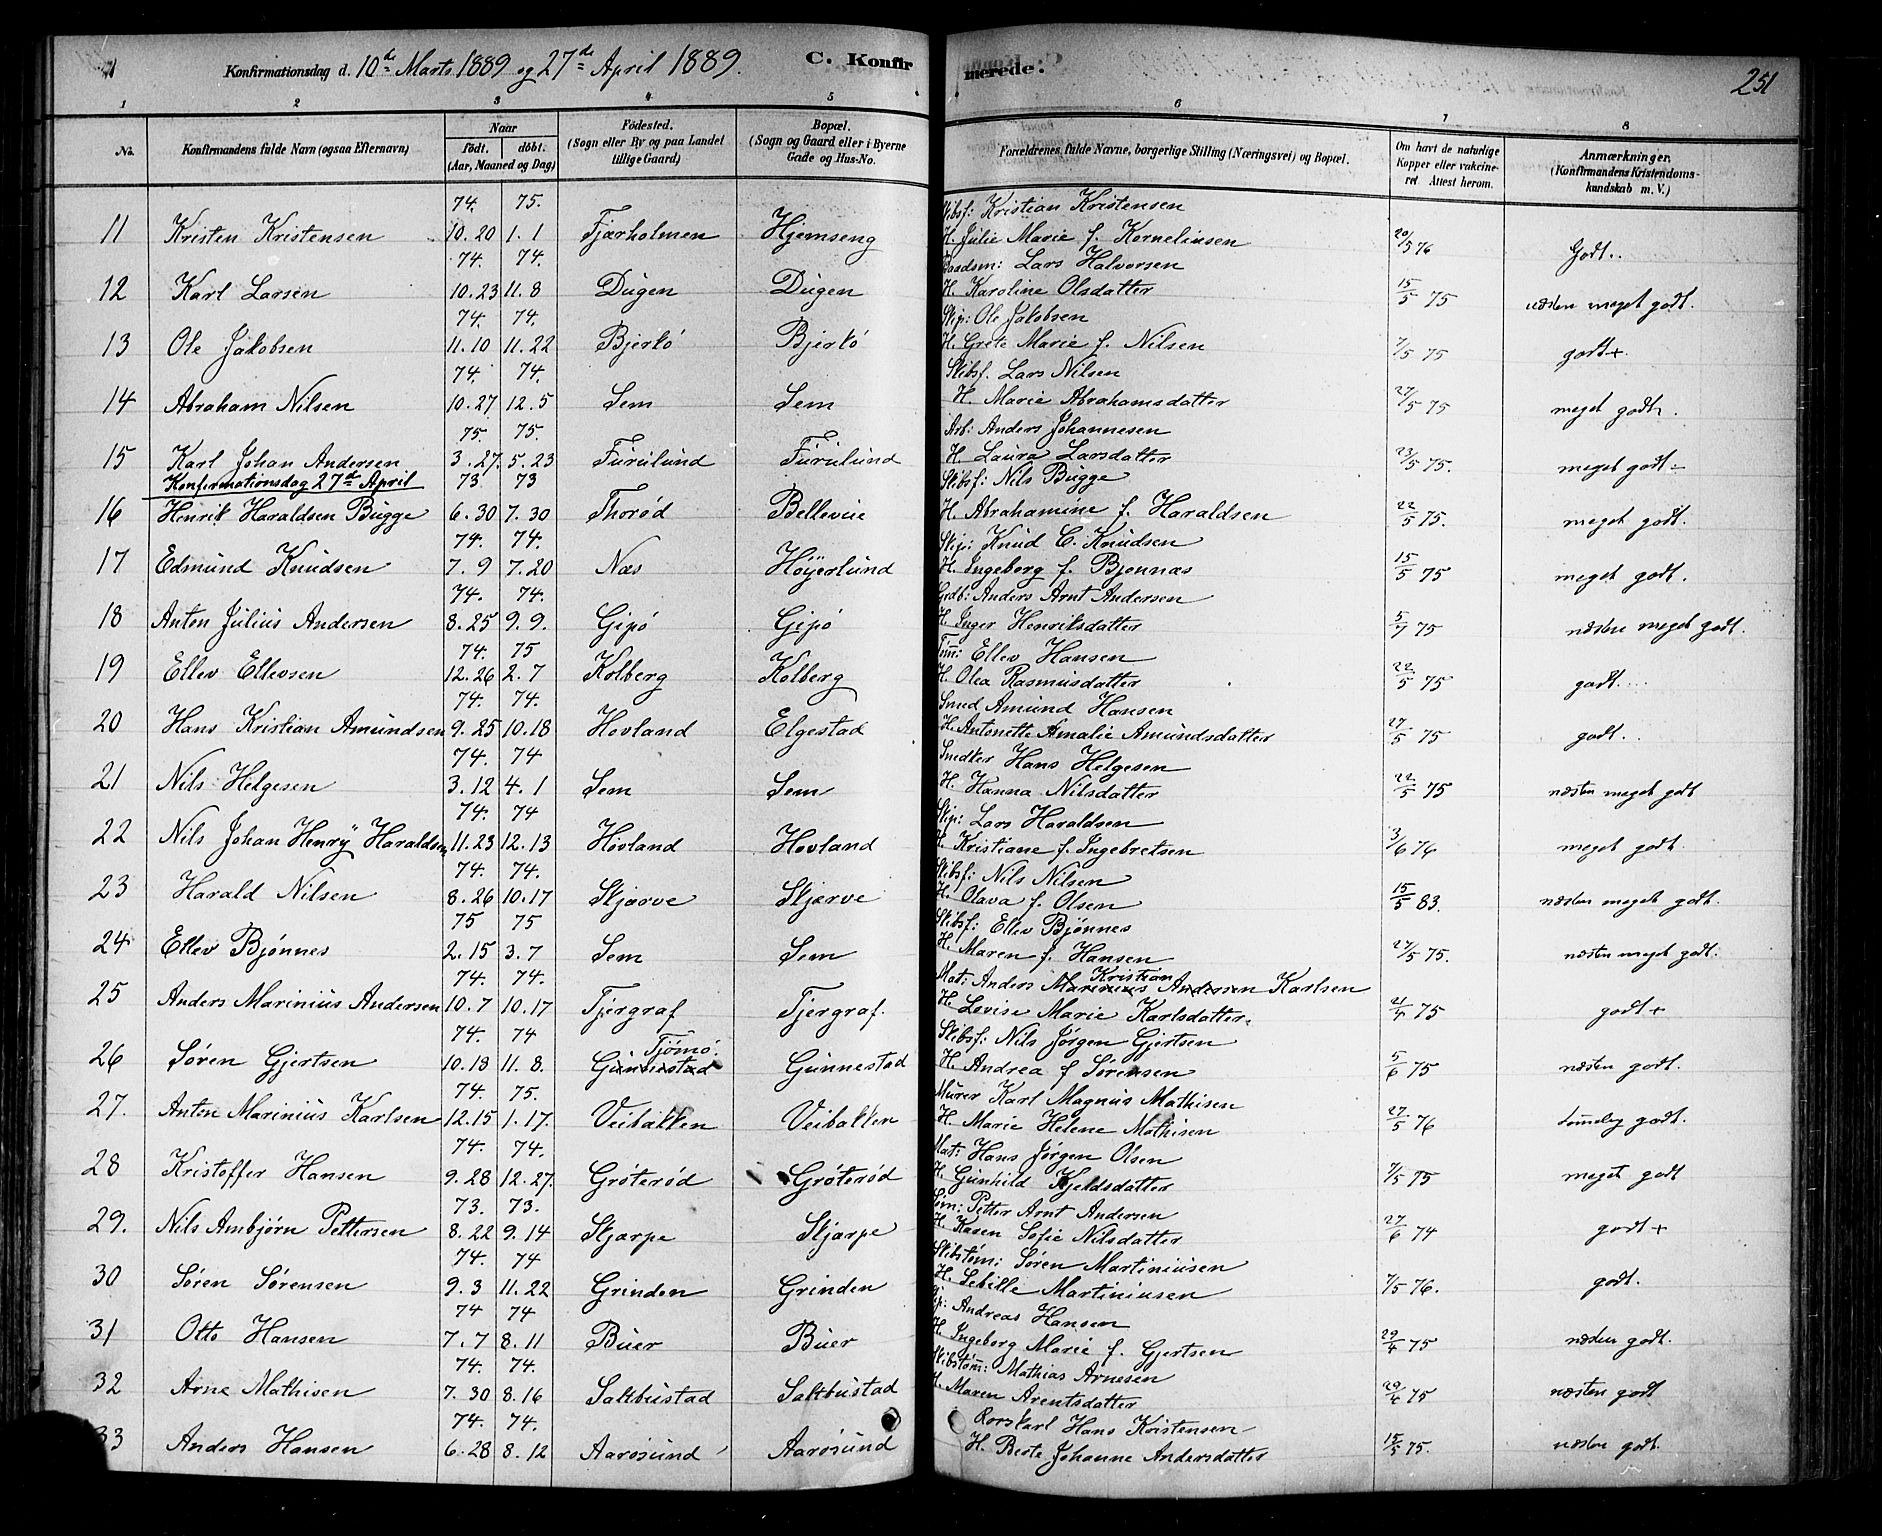 Konfirmationsdag d. 10de Marts 1889 og 27de April 1889. C. Konfirmerede. 251
1 2 3 4 5 6 7 8
No. Konfirmandens fulde Navn (ogsaa Efternavn) Naar født. døbt. (Aar, Maaned og Dag) Fødested. (Sogn eller By og paa Landet tillige Gaard) Bopæl. (Sogn og Gaard eller i Byerne Gade og Hus-No. Forældrenes fulde Navne, borgerlige Stilling (Næringsvei) og Bopæl. Om havt de naturlige Kopper eller vakcineret Attest herom. Anmærkninger. (Konfirmandens Kristendomskundskab m. V.)
74. 75. Skibsf: Kristian Kristensen
11 Kristen Kristensen 10.20 1.1 Fjærholmen Hjemseng H. Julie Marie f. Kornelinsen 20/5 76 Godt.
74. 74. Baadsm: Lars Halvorsen
12 Karl Larsen 10.23 11.8 Dugen Dugen H. Karoline Olsdatter 15/5 75 næsten meget godt.
74. 74. Skip: Ole Jakobsen
13 Ole Jakobsen 11.10 11.22 Bjerkö Bjerkö H. Grete Marie f. Nilsen 7/5 75 godt+.
74. 74. Skibsf. Lars Nilsen
14 Abraham Nilsen 10.27 12.5 Sem Sem H. Marie Abrahamsdatter 27/5 75 meget godt.
75. 75. Arb: Anders Johannesen
15 Karl Johan Andersen 3.27. 5.23 Furulund Furulund H. Laura Larsdatter 23/5 75. meget godt÷
Konfirmationsdag 27de April 73 73 Skibsf: Nils Bugge
16 Henrik Haraldsen Bugge 6.30 7.30 Thorød Bellevue H. Abrahamine f. Haraldsen 22/5 75. meget godt.
74. 74. Skip: Knud C. Knudsen
17 Edmund Knudsen 7.9 7.20 Næs Höyerlund H. Ingeborg f. Bjønnæs 15/5 75 meget godt.
74. 74. Gedb: Anders Arnt Andersen
18 Anton Julius Andersen 8.25 9.9. Gipö Gipö H. Inger Henriksdatter 5/7 75 næsten meget godt.
74. 75 Töm: Ellev Hansen
19 Ellev Ellevsen 12.26 2.7 Kolberg Kolberg H. Olea Rasmusdatter 22/5 75 godt.
74. 74. Smed Amund Hansen
20 Hans Kristian Amundsen 9.25 10.18 Hovland Elgestad H. Antonette Amalie Amundsdatter 27/5 75 godt.
74. 74 Snedker Hans Helgesen
21 Nils Helgesen 3.12 4.1 Sem Sem H. Hanna Nilsdatter 22/5 75 næsten meget godt
74. 74 Skip: Lars Haraldsen
22 Nils Johan Henry Haraldsen 11.23 12.13 Hovland Hovland H. Kristiane f. Ingebretsen 3/6 76 meget godt.
74. 74. Skibsf: Nils Nilsen
23 Harald Nilsen 8.26 10.17 Skjærve Skjærve H. Olava f. Olsen 15/5 83. næsten meget godt.
75 75 Skibsf: Ellev Bjønnes
24 Ellev Bjønnes 2.15 3.7 Sem Sem H. Maren f. Hansen 27/5 75. næsten meget godt.
74. 74. Mat: Anders Marinius Andersen Kristian Karlsen
25 Anders Marinius Andersen 10.7 10.17 Tjergraf Tjergraf. H. Lovise Marie Karlsdatter. 21/4 75 godt +
74. 74 Skibsf: Nils Jørgen Gjertsen
26 Søren Gjertsen 10.18 11.8. Gunnestad Tjømö. Gunnestad H. Andrea f Sørensen 5/6 75 næsten godt.
74. 75. Murer Karl Magnus Mathisen
27. Anton Marinius Karlsen 12.15 1.17. Veibakken Veibakken H. Marie Helene Mathisen 27/5 76 temmelig godt.
74. 74. Mat: Hans Jørgen Olsen
28 Kristoffer Hansen 9.28 12.27. Gröterød Gröterød H. Gunhild Kjeldsdatter 7/5 75 meget godt
73. 73. Töm: Petter Arnt Andersen
29. Nils Ambjørn Pettersen 8.22 9.14 Skjærpe Skjærpe H. Karen Sofie Nilsdatter 27/6 74 godt +
74. 74 Skibstöm: Søren Martiniusen
30 Søren Sørensen 9.3 11.22 Grinden Grinden H. Sebille Martiniusen 7/5 76. godt.
74 74 Skip: Andreas Hansen
31 Otto Hansen 7.7 8.11 Buer Buer H. Ingeborg Marie f. Gjertsen 29/4 75 næsten godt.
74. 74. Skibstöm: Mathias Arnesen
32 Arne Mathisen 7.30 8.16 Saltbustad Saltbustad H. Maren Arentsdatter 29/4 75 næsten godt
74. 74. Rorskarl Hans Kristensen
33 Anders Hansen 6.28 8.12 Aarösund Aarösund H. Berte Johanne Andersdatter 15/5 75. næsten godt.